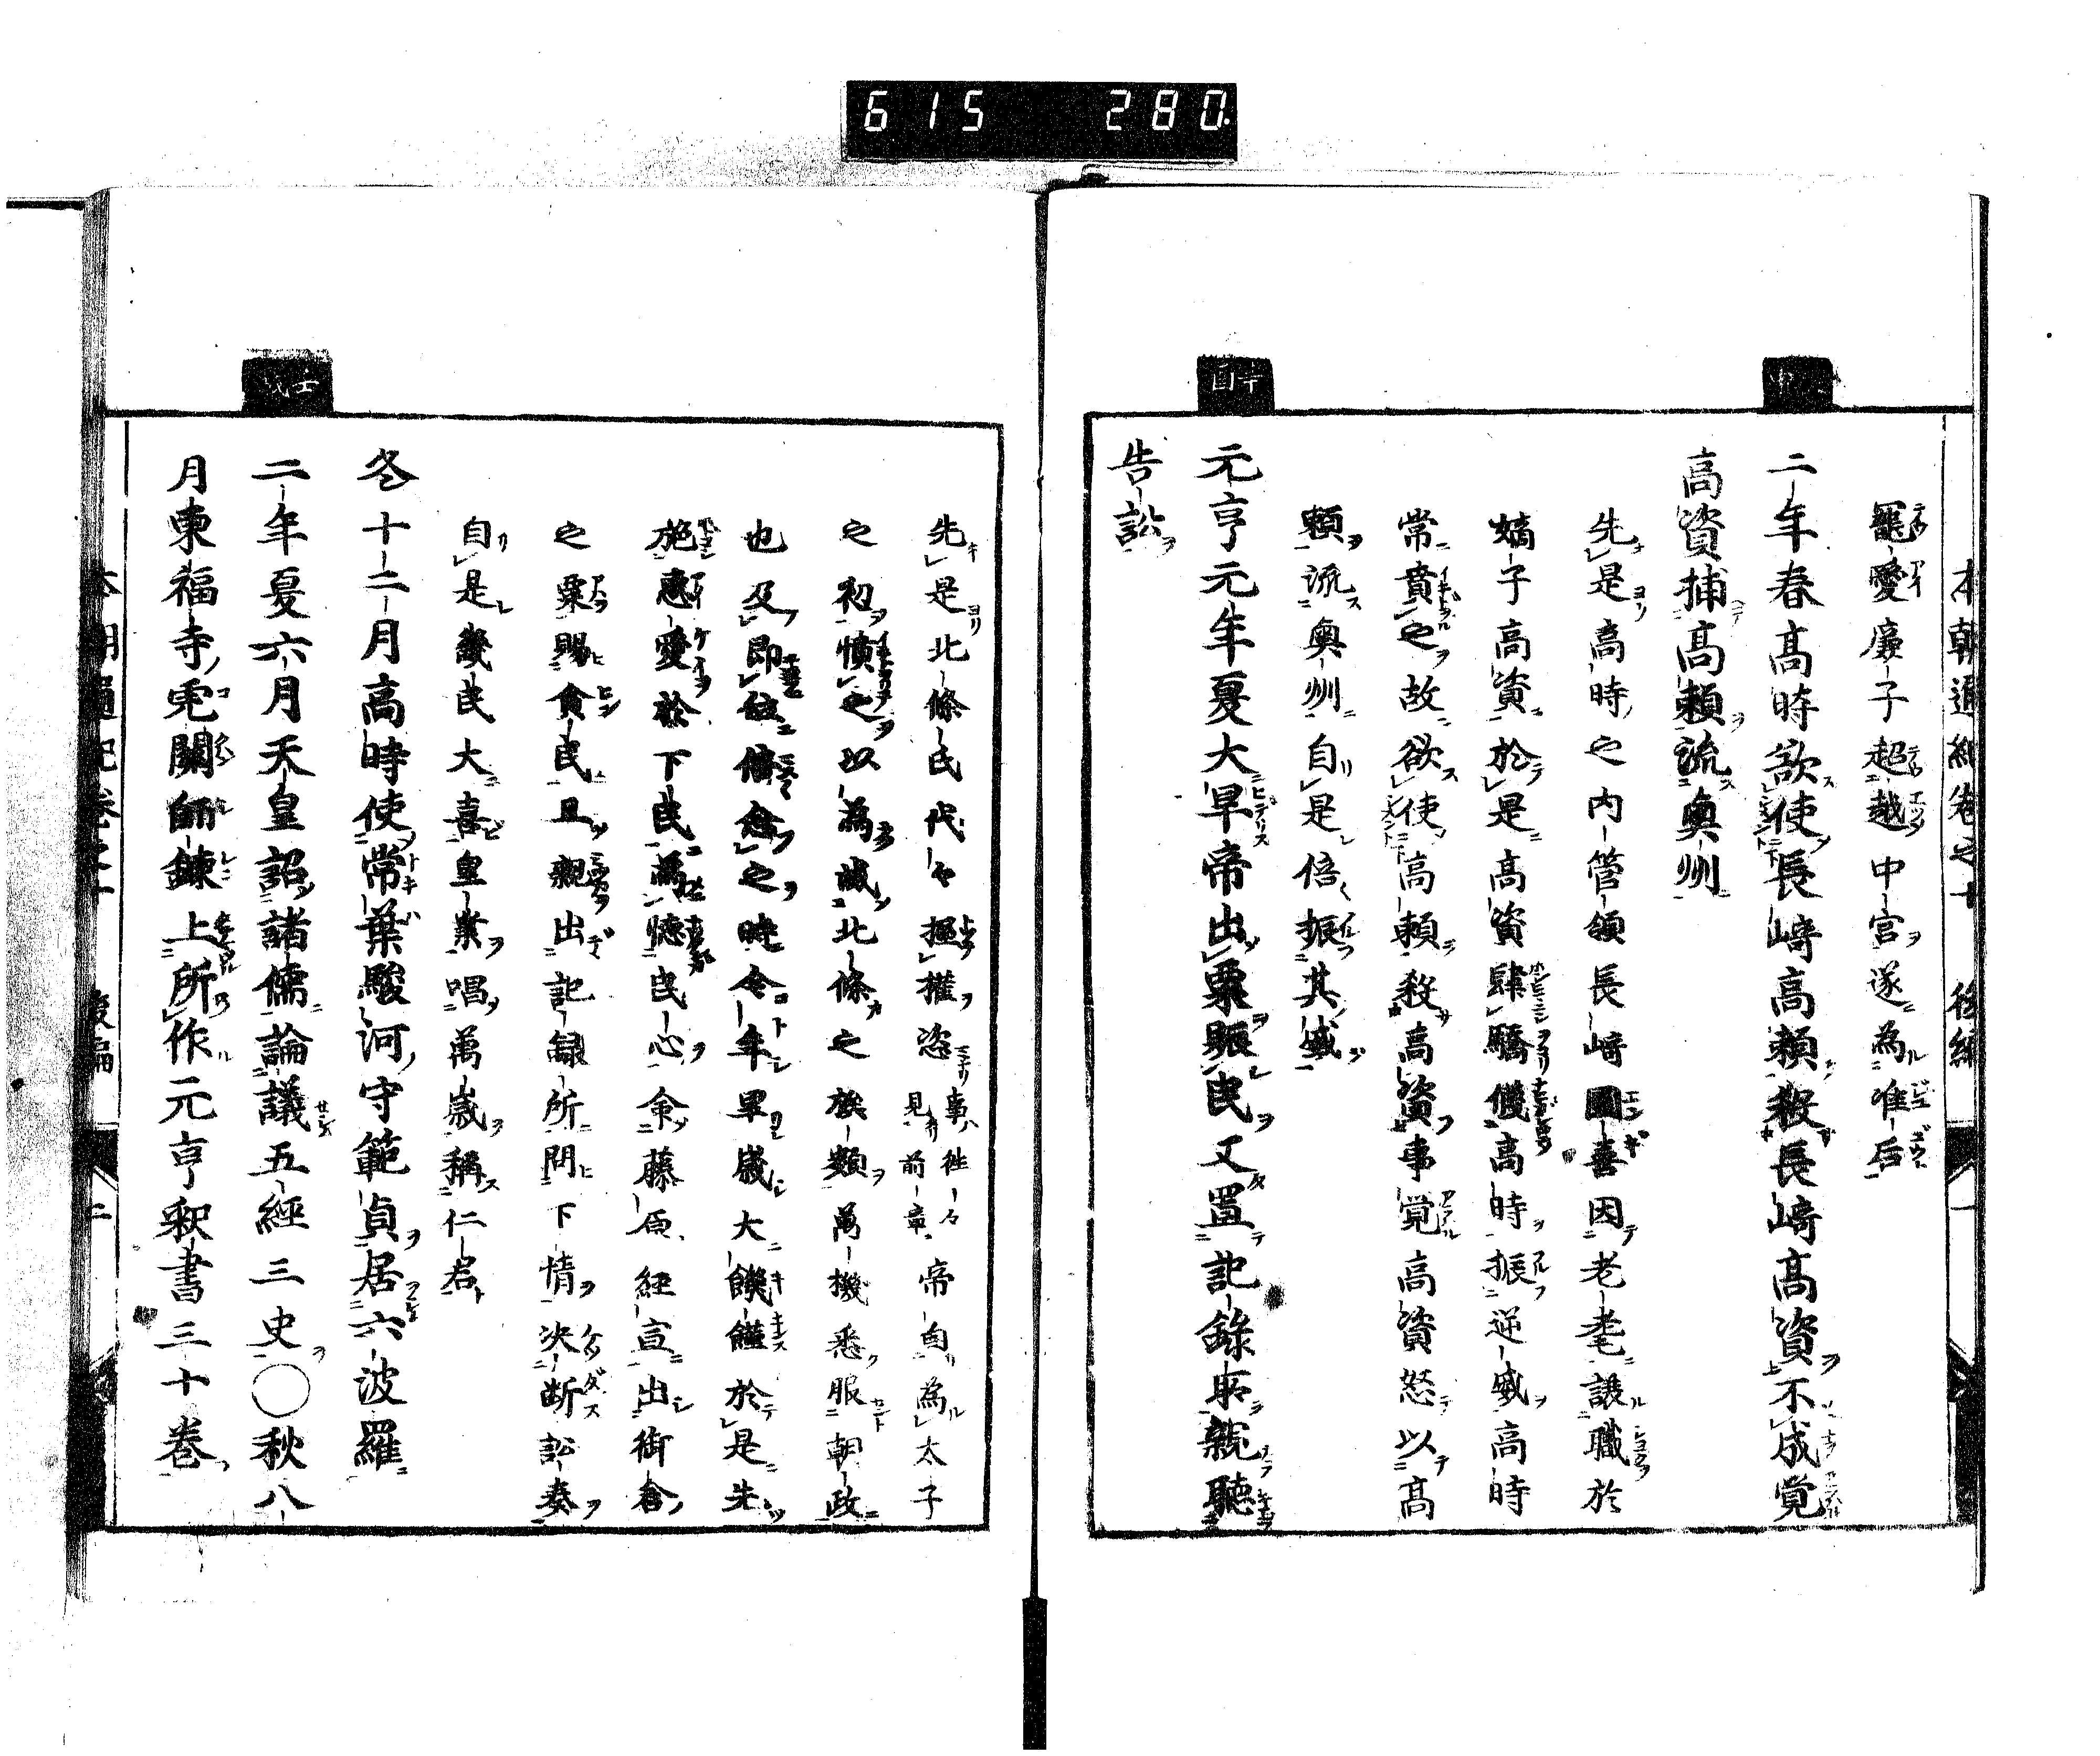 615 280.
本朝通紀卷之十 後編 一
寵愛廉子超越中宮遂為准后
二年春髙時欲使長﨑高賴殺長﨑髙資不成覚
高資捕髙賴流奥州
先是髙時之内管領長﨑圓喜因老耄譲職於
嫡子高資於是髙資肆驕傲高時振逆威高時
常賁之故欲使高賴殺高資事覚高資怒以髙
賴流奥州自是倍振其威
元亨元年夏大旱帝出粟賑民又置記錄所親聽
告訟
先是北條氏代々握權恣事往々見前章帝自為太子
之初憤之以為滅北條之族類萬機悉服朝政
也及即位倍念之時今年旱歳大饑饉於是先
施惠愛於下民為懷民心命藤原經宣出街倉
之粟賜食民且親出記録所問下情决断訟奏
自是畿民大喜皇業唱萬歳稱仁君
冬十二月高時使常葉駿河守範貞居六波羅
二年夏六月天皇詔諸儒論議五經三史〇秋八
月東福寺虎關師鍊上所作元亨釈書三十巻
本朝通紀卷之十 後編 二